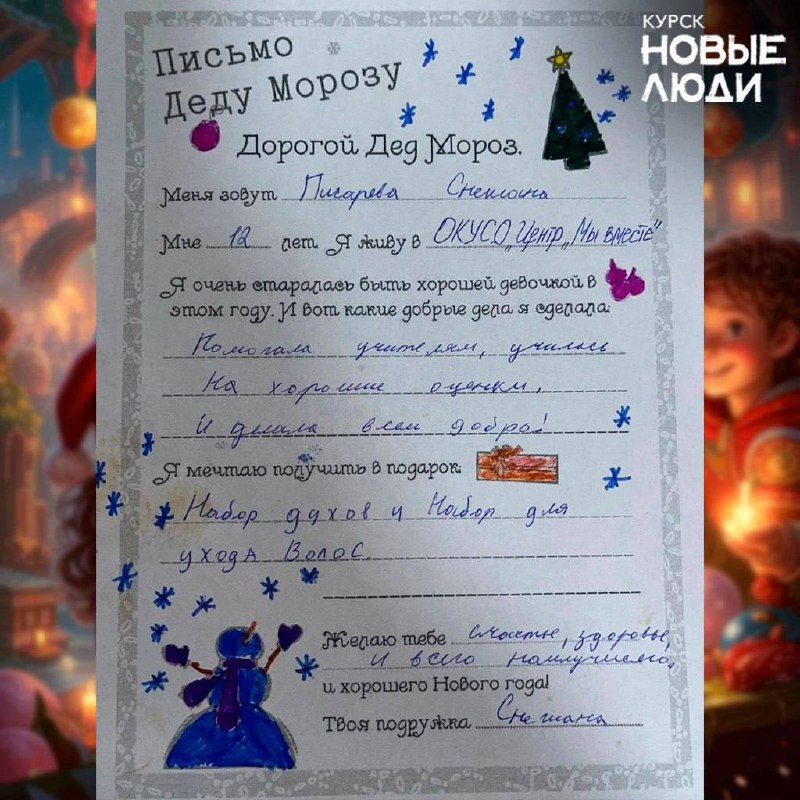 КУРСК
НОВЫЕ
ЛЮДИ
Письмо
Деду Морозу
Дорогой Дед Мороз.
Меня зовут Писарева Снежана
Мне 12 лет. Я живу в ОКУСО "Центр „Мы вместе"
Я очень старалась быть хорошей девочкой в
этом году. И вот какие добрые дела я сделала:
Помогала учителям, училась
На хорошие оценки,
И делала всем добро!
Я мечтаю получить в подарок:
Набор духов и Набор для
ухода Волос.
Желаю тебе счастье, здоровье,
И всего наилучшего,
и хорошего Нового года!
Твоя подружка Снежана